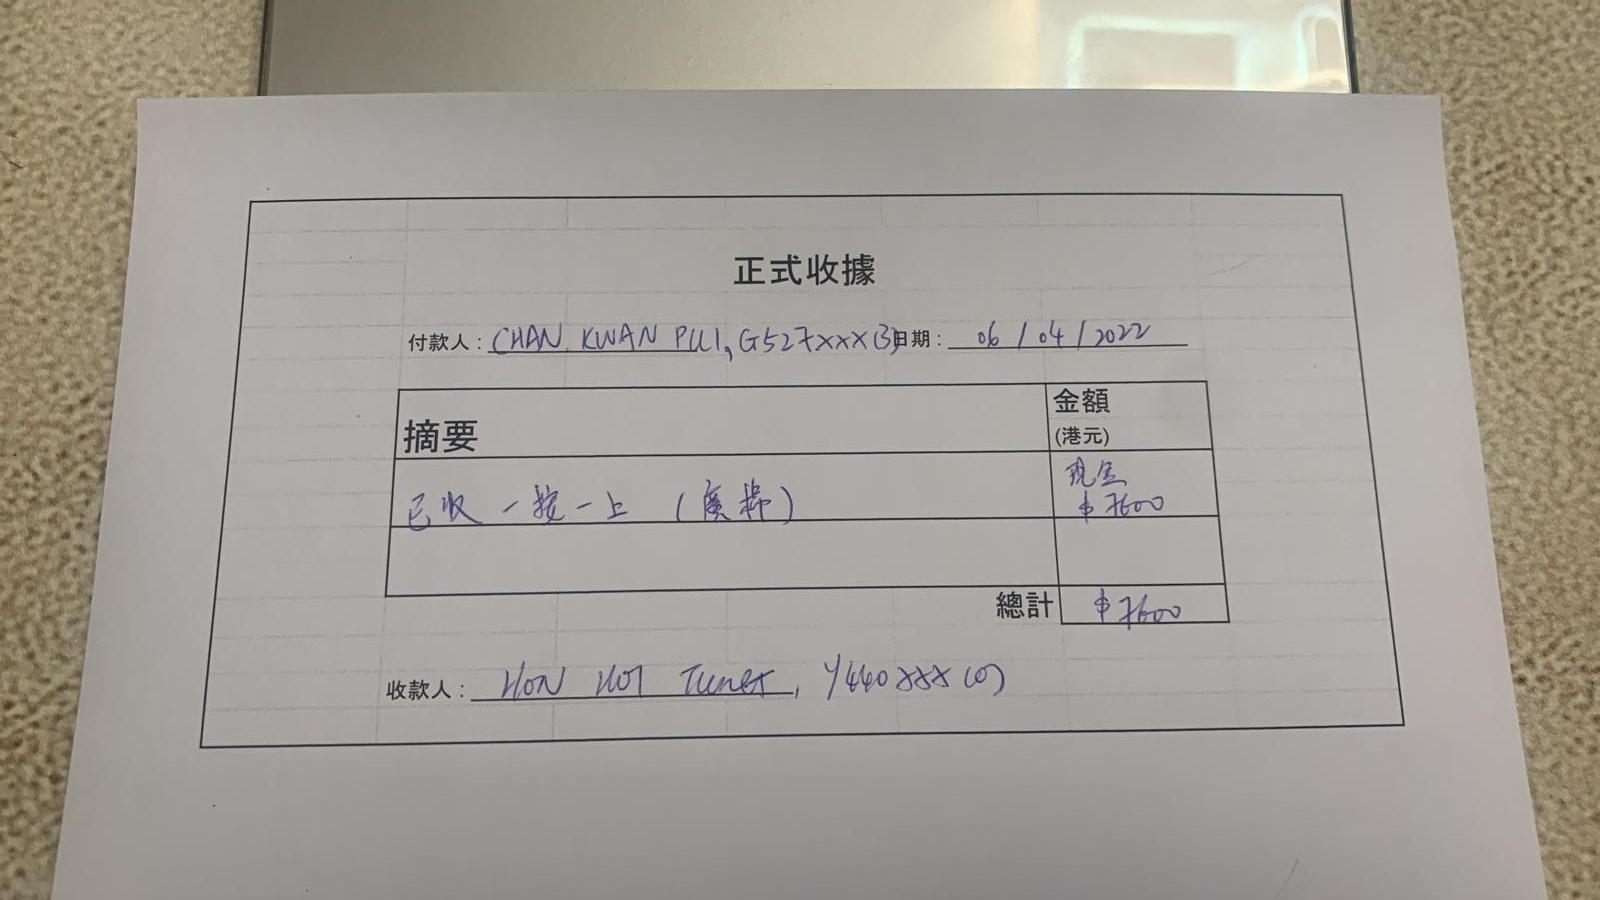 正式收據
付款人: CHAN KWAN PUI, G527xxx(3) 日期: 06 / 04 / 2022
摘要 金額
(港元)
已收 一按一上 ( ) 現金
$7600
總計 $7600
收款人: HON HOI, Y440xxx(0)